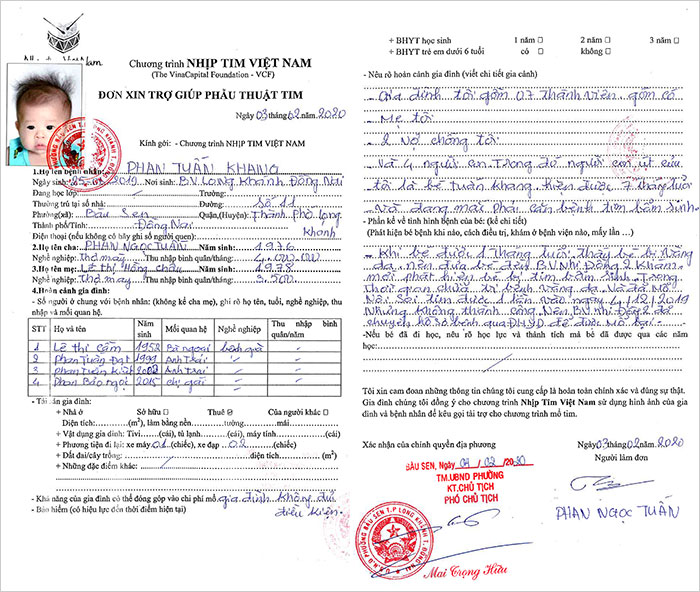 Chương trình NHỊP TIM VIỆT NAM
(The VinaCapital Foundation - VCF)
ĐƠN XIN TRỢ GIÚP PHẪU THUẬT TIM
Ngày 03 tháng 02 năm 2020
Kính gởi: - Chương trình NHỊP TIM VIỆT NAM
1.Họ tên bệnh nhân: PHAN TUẤN KHANG
Ngày sinh: 2019 Nơi sinh: B.V Long Khánh Đồng Nai
Đang học lớp: Trường:
Thường trú tại số nhà: Đường: Số 11
Phường(xã): Bàu Sen Quận,(Huyện): Thành Phố Long Khánh
Thành phố/Tỉnh: Đồng Nai
Điện thoại (nếu không có hãy ghi số người quen):
2.Họ tên cha: PHAN NGỌC TUẤN Năm sinh: 1976
Nghề nghiệp: Thợ máy Thu nhập bình quân/tháng: 4.000.000
3.Họ tên mẹ: Lê Thị Hồng Châu Năm sinh: 1978
Nghề nghiệp: Thợ may Thu nhập bình quân/tháng: 3.500
4.Hoàn cảnh gia đình:
- Số người ở chung với bệnh nhân: (không kể cha mẹ), ghi rõ họ tên, tuổi, nghề nghiệp, thu nhập và mối quan hệ.
STT Họ và tên Năm sinh Mối quan hệ Nghề nghiệp Thu nhập bình quân/năm
1 Lê Thị Cẩm 1952 Bà ngoại bệnh già
2 Phan Tuấn Đạt 1999 Anh Trai
3 Phan Tuấn Kiệt 2002 Anh Trai
4 Phan Bảo Ngọc 2015 chị gái
- Tài sản gia đình:
+ Nhà ở Sở hữu Thuê Của người khác
Diện tích: (m²), làm bằng nền tường, mái
+ Vật dụng gia đình: Tivi (cái), tủ lạnh (cái), máy tính (cái)
+ Phương tiện đi lại: xe máy 01 (chiếc), xe đạp 02 (chiếc)
+ Đất đai/cây trồng: diện tích (m²)
+ Những đặc điểm khác:
- Khả năng của gia đình có thể đóng góp vào chi phí mổ: gia đình không đủ điều kiện.
- Bảo hiểm (có hiệu lực đến thời điểm hiện tại)
+ BHYT học sinh 1 năm 2 năm 3 năm
+ BHYT trẻ em dưới 6 tuổi có không
- Nêu rõ hoàn cảnh gia đình (viết chi tiết gia cảnh)
- Gia đình tôi gồm 07 thành viên, gồm có
- Mẹ tôi
- 2 vợ chồng tôi
- Và 4 người con Trong đó người con út của
tôi là bé tuấn khang hiện được 7 tháng tuổi
- Và đang mắc phải căn bệnh tim bẩm sinh
- Phần kể về tình hình bệnh của bé: (kể chi tiết)
(Phát hiện bệnh khi nào, cách điều trị, khám ở bệnh viện nào, mấy lần ...)
- Khi bé được 1 Tháng tuổi thấy bé bị Vàng
da, nên đưa bé đến B.V Nhi Đồng 2 Khám
mới bé bị bệnh tim bẩm sinh Trong
Thời gian chữa trị bệnh vàng da Và đã Mổ
Nội Soi tim được 1 lần vào ngày 4/12/2019
Nhưng không thành công Nên B.V Nhi Đồng 2 đã
chuyển hồ sơ bệnh qua ĐHYD để được Mổ lại
-Nếu bé đã đi học, nêu rõ học lực và thành tích mà bé đã được qua các năm học:
Tôi xin cam đoan những thông tin chúng tôi cung cấp là hoàn toàn chính xác và đúng sự thật.
Gia đình chúng tôi đồng ý cho chương trình Nhịp Tim Việt Nam sử dụng hình ảnh của gia đình và bệnh nhân để kêu gọi tài trợ cho chương trình mổ tim.
Xác nhận của chính quyền địa phương
BÀU SEN, Ngày 04 / 02 / 2020
TM.UBND PHƯỜNG
KT.CHỦ TỊCH
PHÓ CHỦ TỊCH
Mai Trọng Hữu
Ngày 03 tháng 02 năm 2020
Người làm đơn
PHAN NGỌC TUẤN